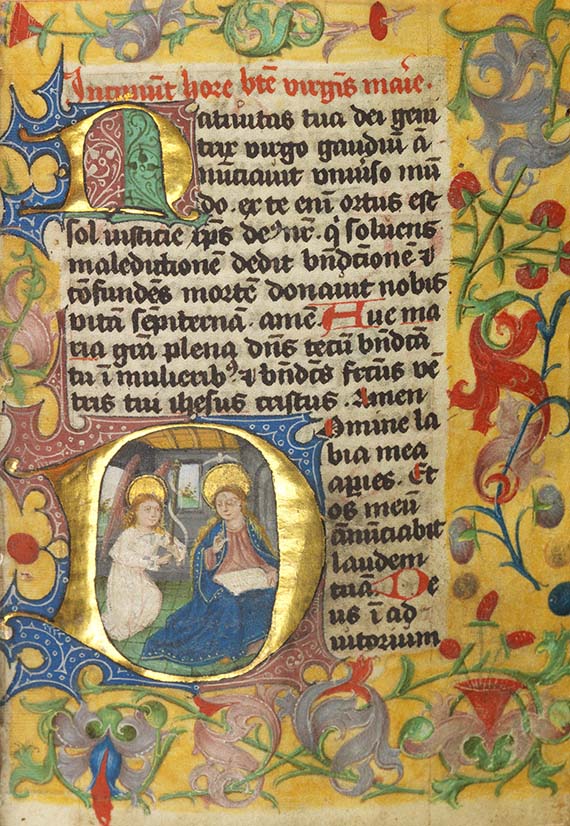 Incipiūt hore bt̄e virgīs marie.
Natiuitas tua dei geni
trix virgo gaudiū ā
nūciauit vniūso mū
do. ex te eni ortus est
sol iusticie xp̄s de9 nr̄. q̇ soluens
maledictionē dedit bn̄dctionē ⁊
cōfundēs mortē donauit nobis
vitā sēpiternā. amē. Aue ma
ria grā plena dn̄s tecū bn̄dcā
tu ī mulierib9 ⁊ bn̄dcs̄ fctus vē
tris tui ihesus cristus. Amen
Domine la
bia mea
apies. Et
os meū
ānūciabit
laudem
tuā. De
us ī ad
iutorium